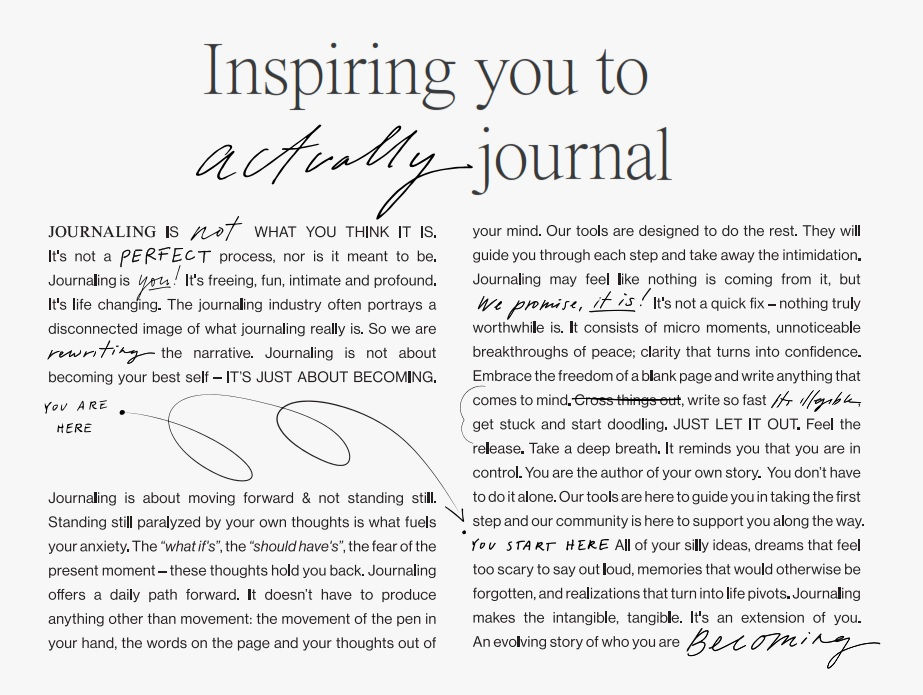 Inspiring you to
actually journal
JOURNALING IS not WHAT YOU THINK IT IS.
It's not a PERFECT process, nor is it meant to be.
Journaling is you! It's freeing, fun, intimate and profound.
It's life changing. The journaling industry often portrays a
disconnected image of what journaling really is. So we are
rewriting the narrative. Journaling is not about
becoming your best self – IT'S JUST ABOUT BECOMING.
YOU ARE
HERE
Journaling is about moving forward & not standing still.
Standing still paralyzed by your own thoughts is what fuels
your anxiety. The “what if's”, the “should have's”, the fear of the
present moment – these thoughts hold you back. Journaling
offers a daily path forward. It doesn't have to produce
anything other than movement: the movement of the pen in
your hand, the words on the page and your thoughts out of
your mind. Our tools are designed to do the rest. They will
guide you through each step and take away the intimidation.
Journaling may feel like nothing is coming from it, but
We promise, it is! It's not a quick fix – nothing truly
worthwhile is. It consists of micro moments, unnoticeable
breakthroughs of peace; clarity that turns into confidence.
Embrace the freedom of a blank page and write anything that
comes to mind. Cross things out, write so fast It's illegible,
get stuck and start doodling. JUST LET IT OUT. Feel the
release. Take a deep breath. It reminds you that you are in
control. You are the author of your own story. You don't have
to do it alone. Our tools are here to guide you in taking the first
step and our community is here to support you along the way.
YOU START HERE All of your silly ideas, dreams that feel
too scary to say out loud, memories that would otherwise be
forgotten, and realizations that turn into life pivots. Journaling
makes the intangible, tangible. It's an extension of you.
An evolving story of who you are Becoming